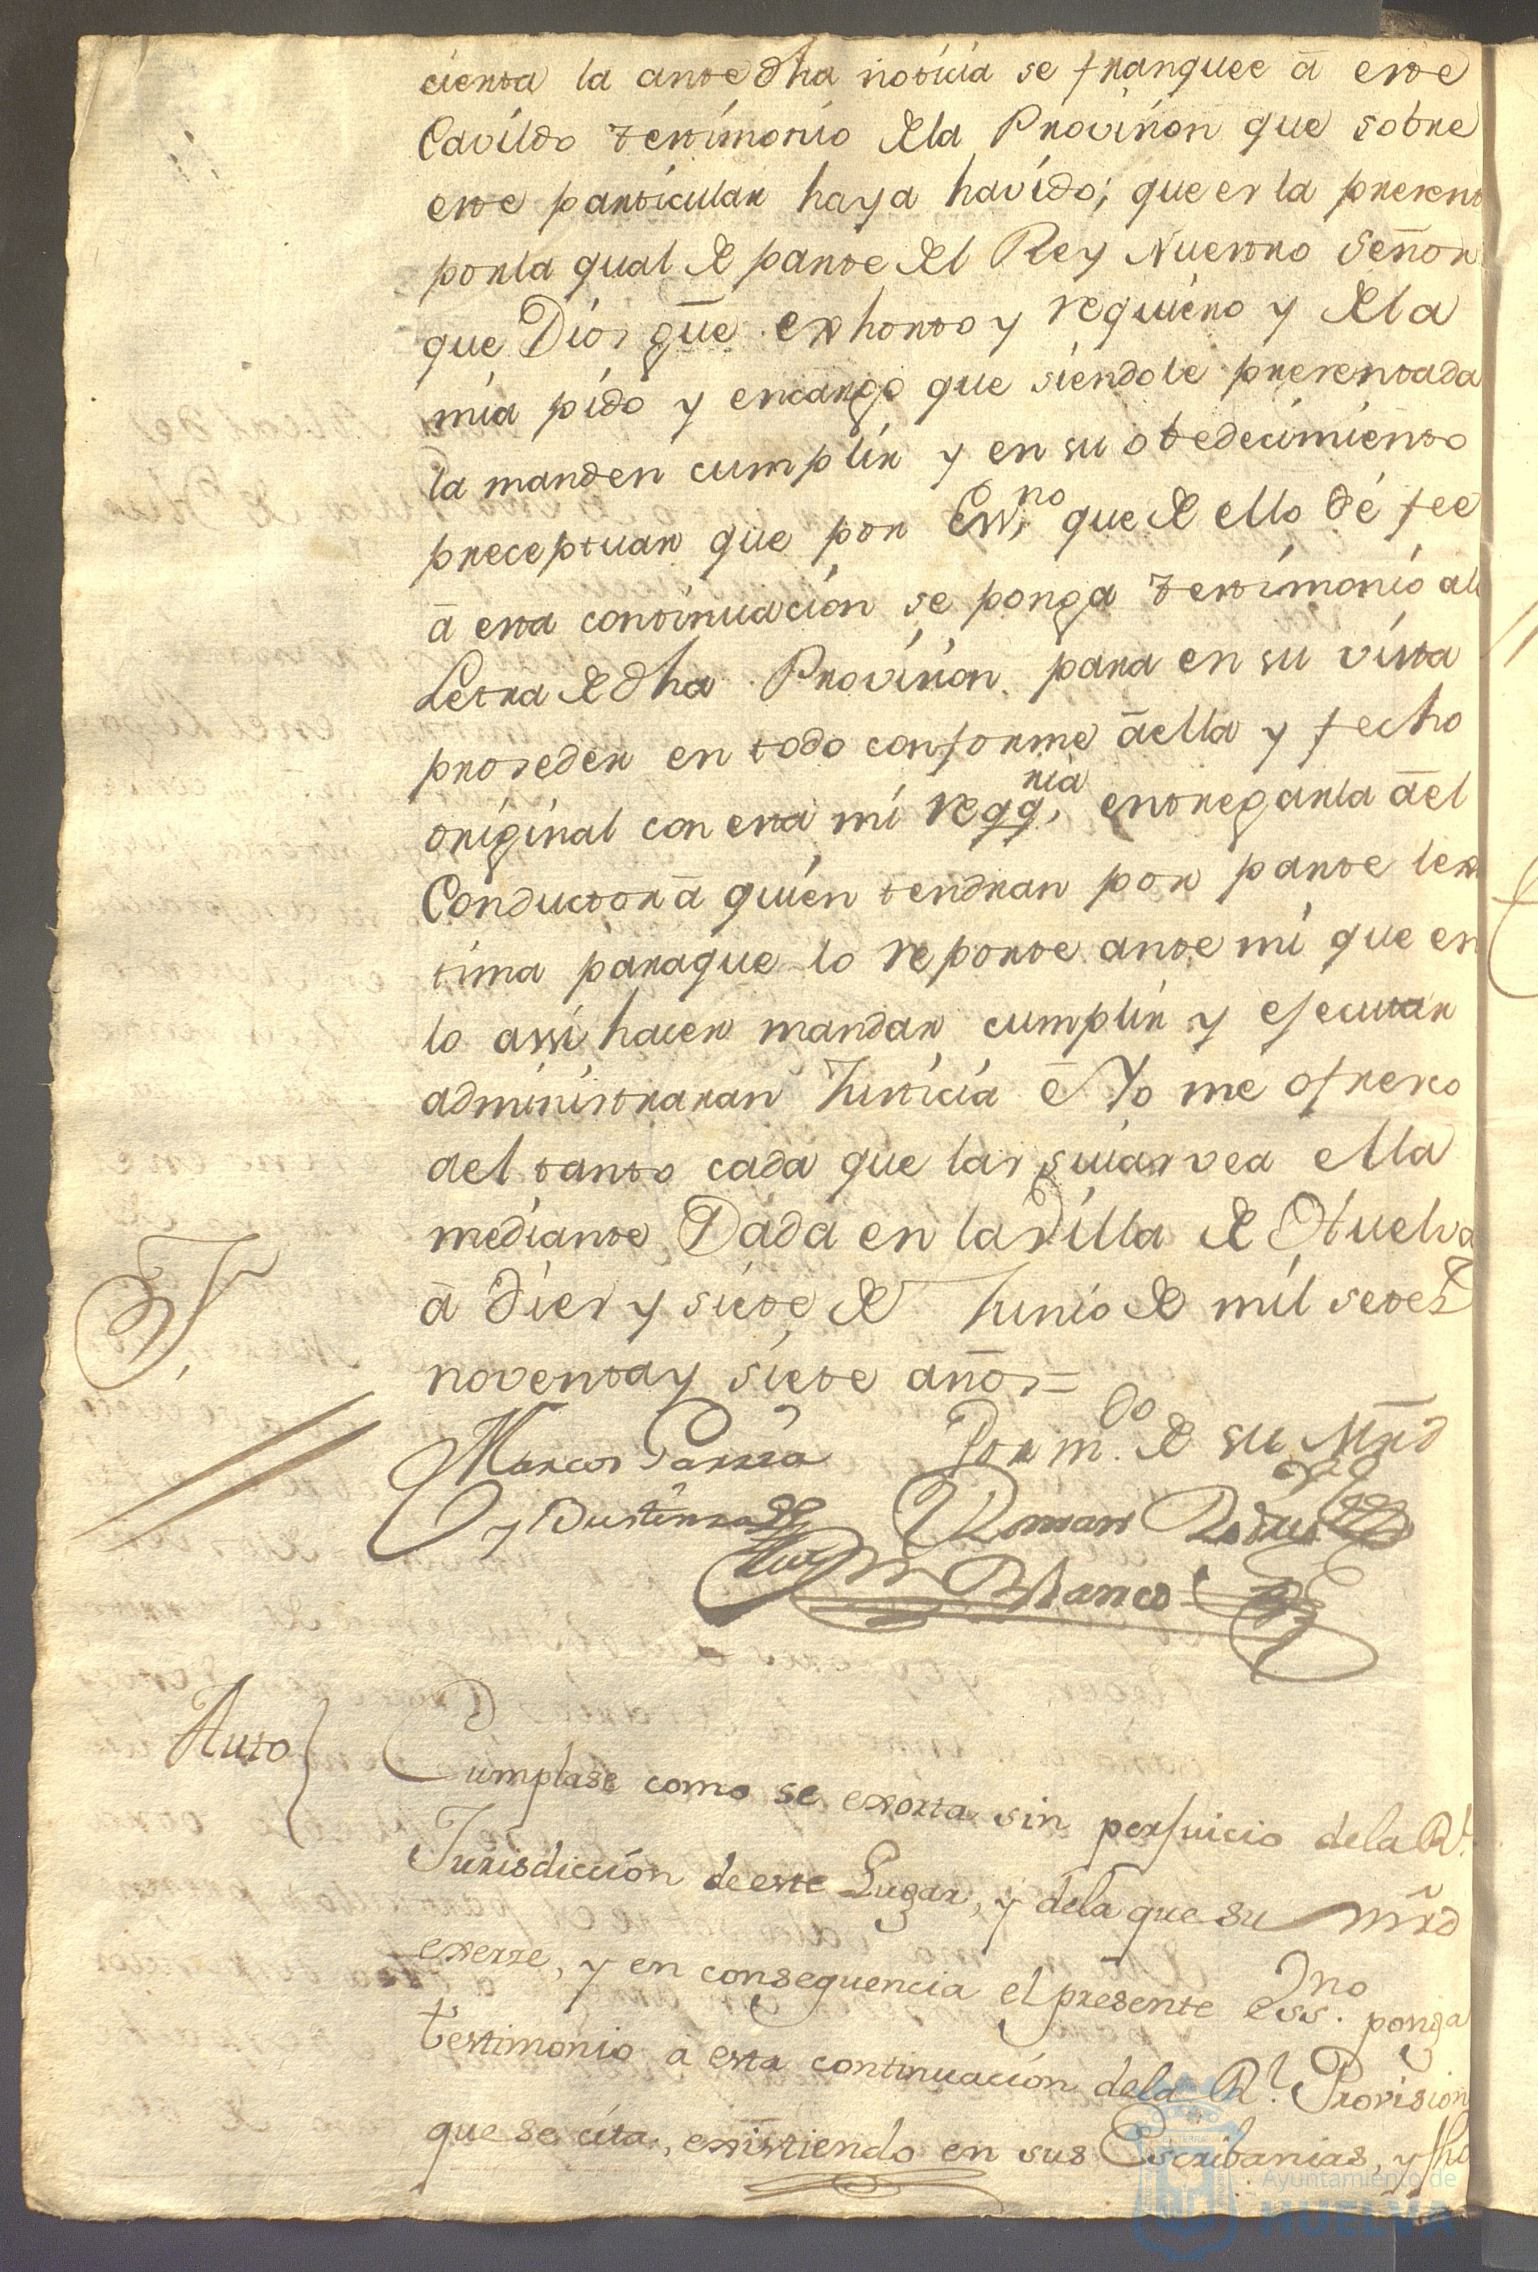 cierta la antedha noticia se franquee â este
Cavildo testimonio de la Provision que sobre
este particular haya havido; que es la present
por la qual de parte del Rey Nuestro Señor
que Dios gũe exhorto y requiero y de la
mia pido y encargo que siendole presentada
la manden cumplir y en su obedecimiento
preceptuar que por Ess.no que de ello dé fee
â esta continuacion se ponga testimonio ala
Letra de dha Provision para en su vista
proseder en todo conforme âella y fecho
original con esta mi reqq.ria entregarla âel
Conductor â quien tendran por parte lex
tima paraque lo reporte ante mi que en
lo assi hacer mandar cumplir y ejecutar
administraran Justicia ê Yo me ofresco
ael tanto cada que las suias vea ella
mediante Dada en la Villa de Huelva
â dies y siete de Junio de mil setes
noventa y siete años=
Marcos Garzia Por m.do de su Mrd
y Bustenza Roman Rodrig
Blanco
Auto
Cumplase como se exorta sin perjuicio dela Rl.
Jurisdiccion deeste Lugar, y dela que su mrd
exerze, y en consequencia el presente Ess.no ponga
testimonio â esta continuacion dela Rl. Provision
que se cita, existiendo en sus Escribanias, y fho
Ayuntamiento de
HUELVA